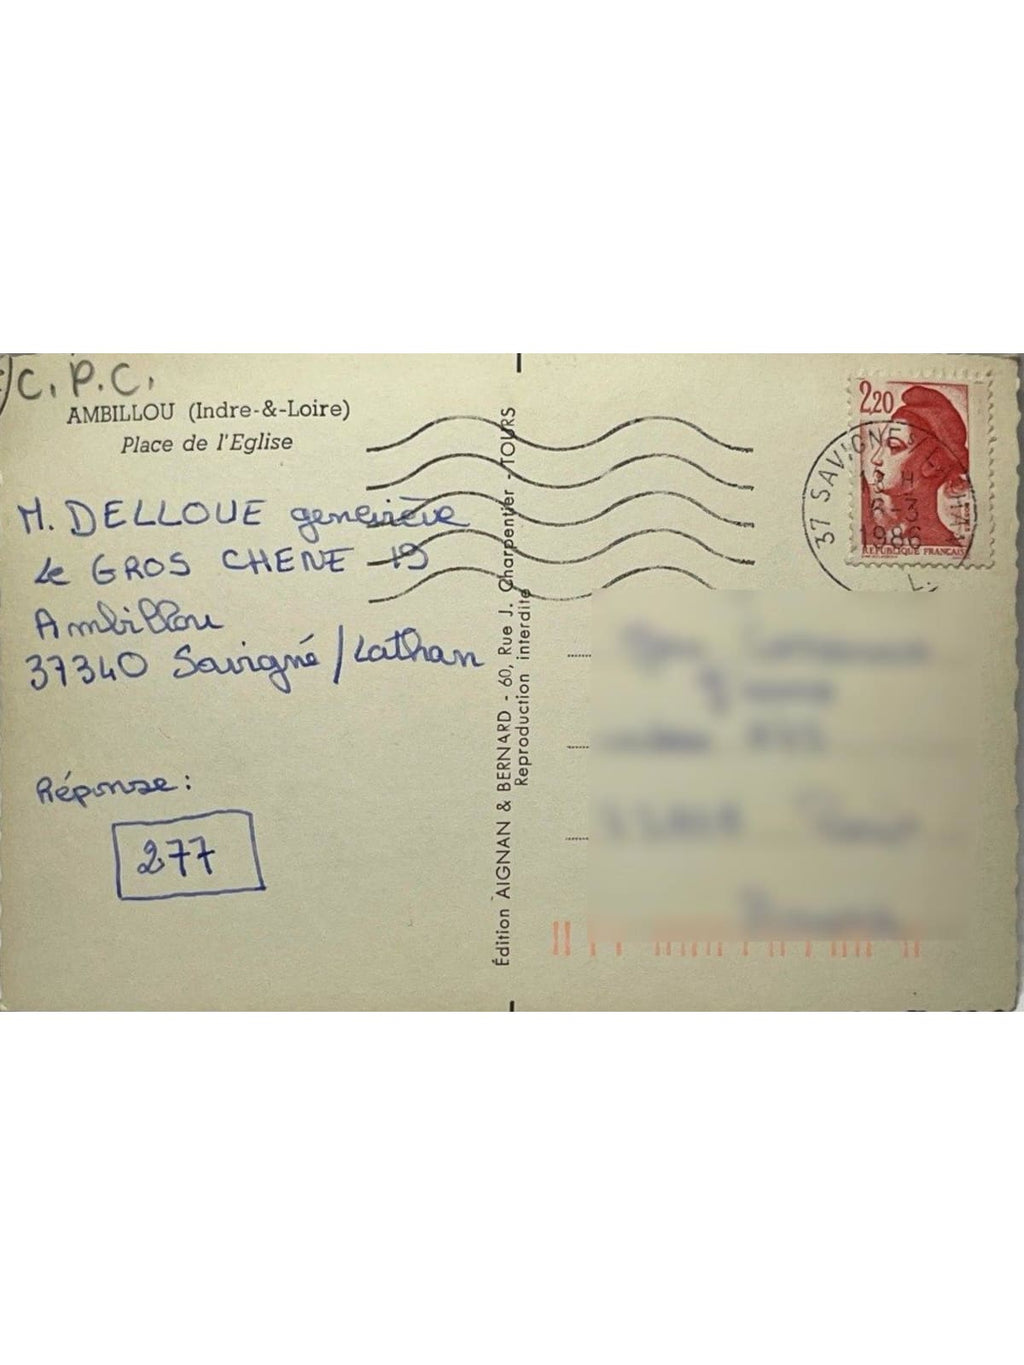 C. P. C.
AMBILLOU (Indre-&-Loire)
Place de l'Eglise
M. DELLOUE geneviève
le GROS CHENE 19
Ambillou
37340 Savigné/Lathan
Réponse:
277
Édition AIGNAN & BERNARD - 60, Rue J. Charpentier - TOURS
Reproduction interdite
2,20
REPUBLIQUE FRANÇAISE
37 SAVIGNE
6-3
1986